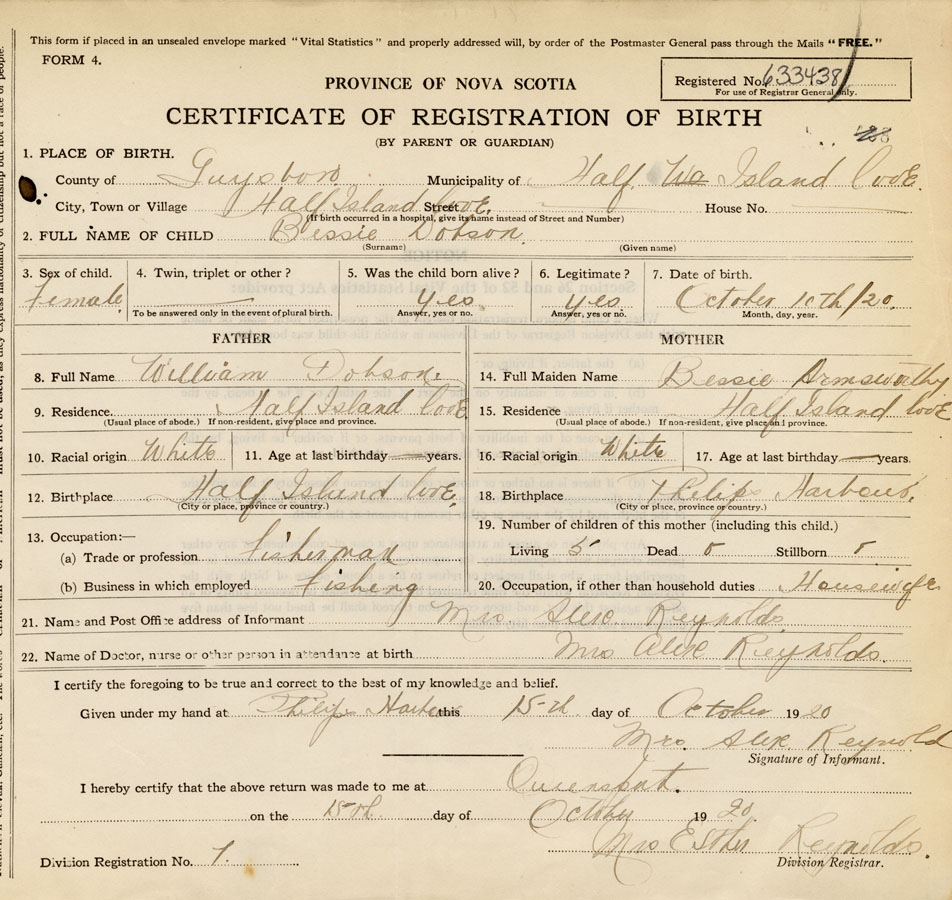 This form if placed in an unsealed envelope marked "Vital Statistics" and properly addressed will, by order of the Postmaster General pass through the Mails "FREE."
FORM 4.
Registered No. 633438
For use of Registrar General only.
PROVINCE OF NOVA SCOTIA
CERTIFICATE OF REGISTRATION OF BIRTH
(BY PARENT OR GUARDIAN)
1. PLACE OF BIRTH.
County of Guysboro Municipality of Half Wa Island Cove.
City, Town or Village Half Island Cove. Street House No.
(If birth occurred in a hospital, give its name instead of Street and Number)
2. FULL NAME OF CHILD Bessie Dobson
(Surname) (Given name)
3. Sex of child. 4. Twin, triplet or other? 5. Was the child born alive? 6. Legitimate? 7. Date of birth.
Female yes yes October 10th/20.
To be answered only in the event of plural birth. Answer, yes or no. Answer, yes or no. Month, day, year.
FATHER MOTHER
8. Full Name William Dobson. 14. Full Maiden Name Bessie Armsworthy
9. Residence. Half Island Cove 15. Residence Half Island Cove
(Usual place of abode.) If non-resident, give place and province. (Usual place of abode.) If non-resident, give place and province.
10. Racial origin White 11. Age at last birthday years. 16. Racial origin White 17. Age at last birthday years.
12. Birthplace Half Island Cove. 18. Birthplace Philips Harbour.
(City or place, province or country.) (City or place, province or country.)
13. Occupation:— 19. Number of children of this mother (including this child.)
(a) Trade or profession Fisherman Living 5 Dead Stillborn
(b) Business in which employed Fishing 20. Occupation, if other than household duties Housewife.
21. Name and Post Office address of Informant Mrs Alex. Reynolds
22. Name of Doctor, nurse or other person in attendance at birth Mrs Alex Reynolds.
I certify the foregoing to be true and correct to the best of my knowledge and belief.
Given under my hand at Philips Harbour this 15th day of October 1920
Mrs. Alex. Reynold
Signature of Informant.
I hereby certify that the above return was made to me at Queensport.
on the 15th day of October 1920.
Mrs Esther Reynolds.
Division Registration No. 7. Division Registrar.